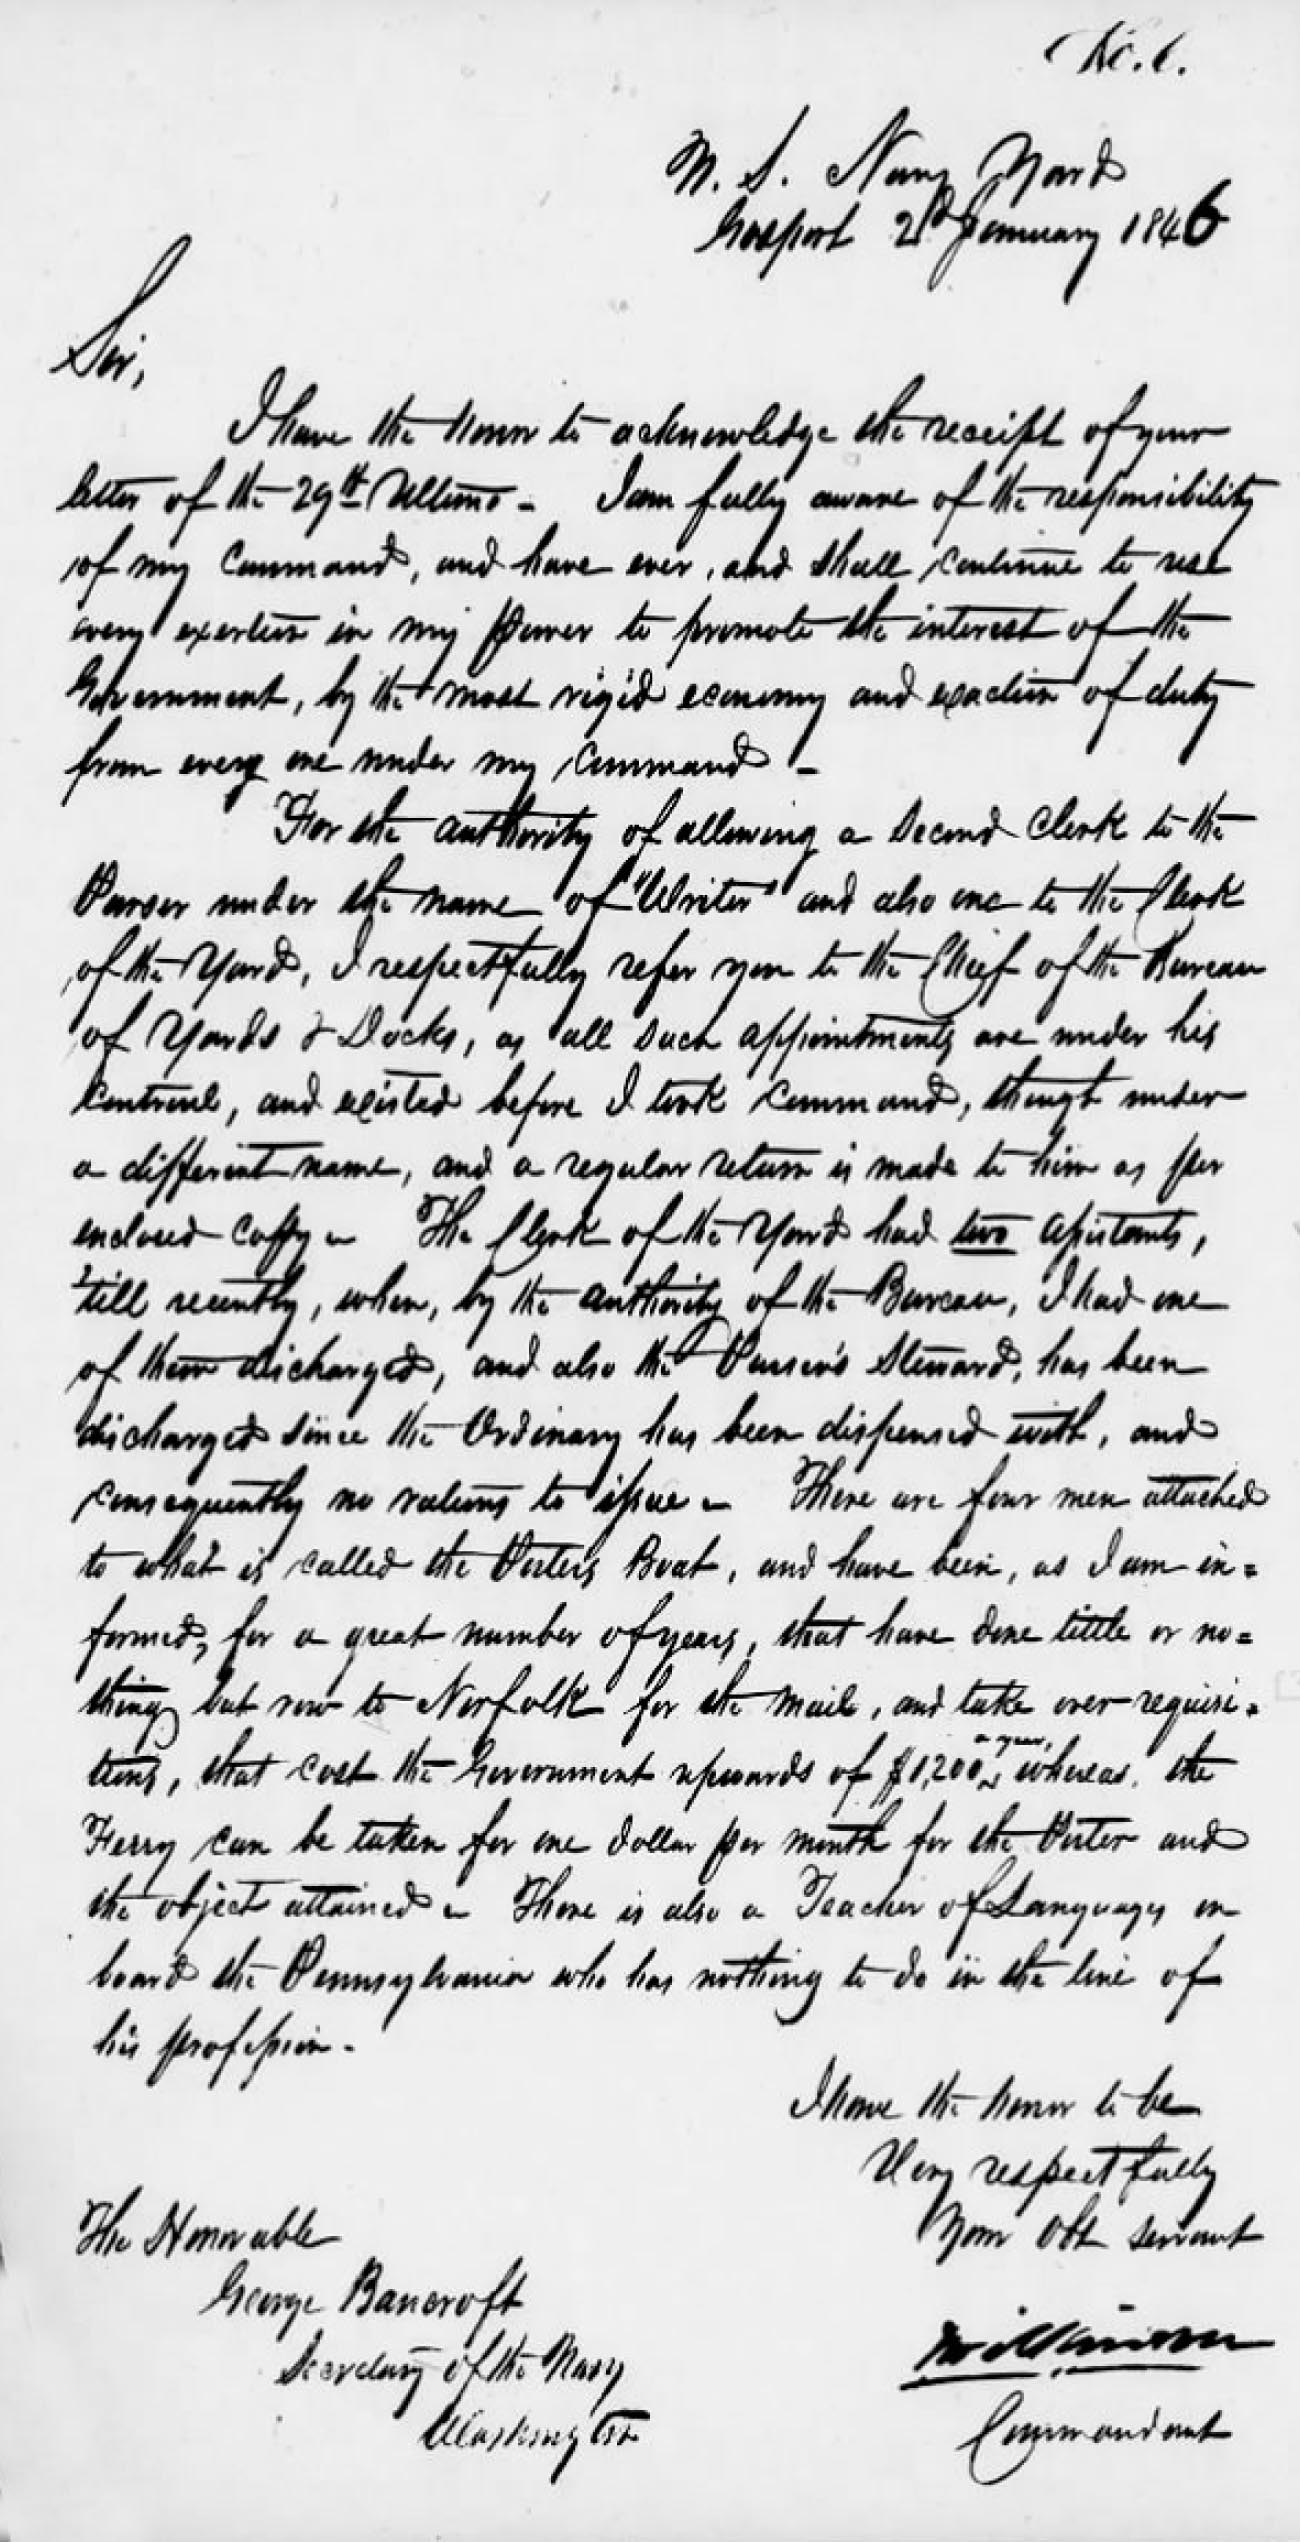 No. 6.
U. S. Navy Yard
Gosport 2d January 1846
Sir,
I have the honor to acknowledge the receipt of your
letter of the 29th Ultimo - I am fully aware of the responsibility
of my Command, and have ever, and shall continue to use
every exertion in my power to promote the interest of the
Government, by the most rigid economy and exaction of duty
from every one under my command -
For the authority of allowing a second Clerk to the
Purser under the name of "Writer" and also one to the Clerk
of the Yard, I respectfully refer you to the Chief of the Bureau
of Yards & Docks, as all such appointments are under his
controul, and existed before I took command, though under
a different name, and a regular return is made to him as per
enclosed copy - The Clerk of the Yard had two assistants,
'till recently, when, by the authority of the Bureau, I had one
of them discharged, and also the Purser's Steward, has been
discharged since the Ordinary has been dispensed with, and
consequently no rations to issue - There are four men attached
to what is called the Porters Boat, and have been, as I am in=
formed, for a great number of years, that have done little or no=
thing but row to Norfolk for the mail, and take over requisi=
tions, that cost the Government upwards of $1,200 a year, whereas, the
Ferry can be taken for one dollar per month for the Porter and
the object attained - There is also a Teacher of Languages on
board the Pennsylvania who has nothing to do in the line of
his profession -
I have the honor to be
Very respectfully
Your Obt servant
The Honorable
George Bancroft
Secretary of the Navy
Washington
Wilkinson
Commandant